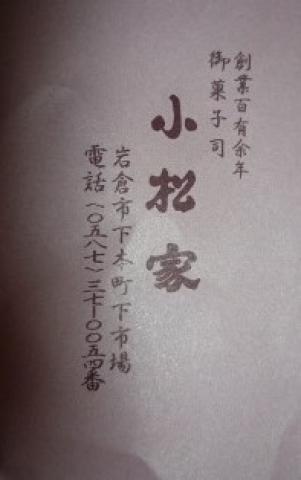 創業百有余年
御菓子司
小松家
岩倉市下本町下市場
電話〈〇五八七〉三七ー〇〇五四番